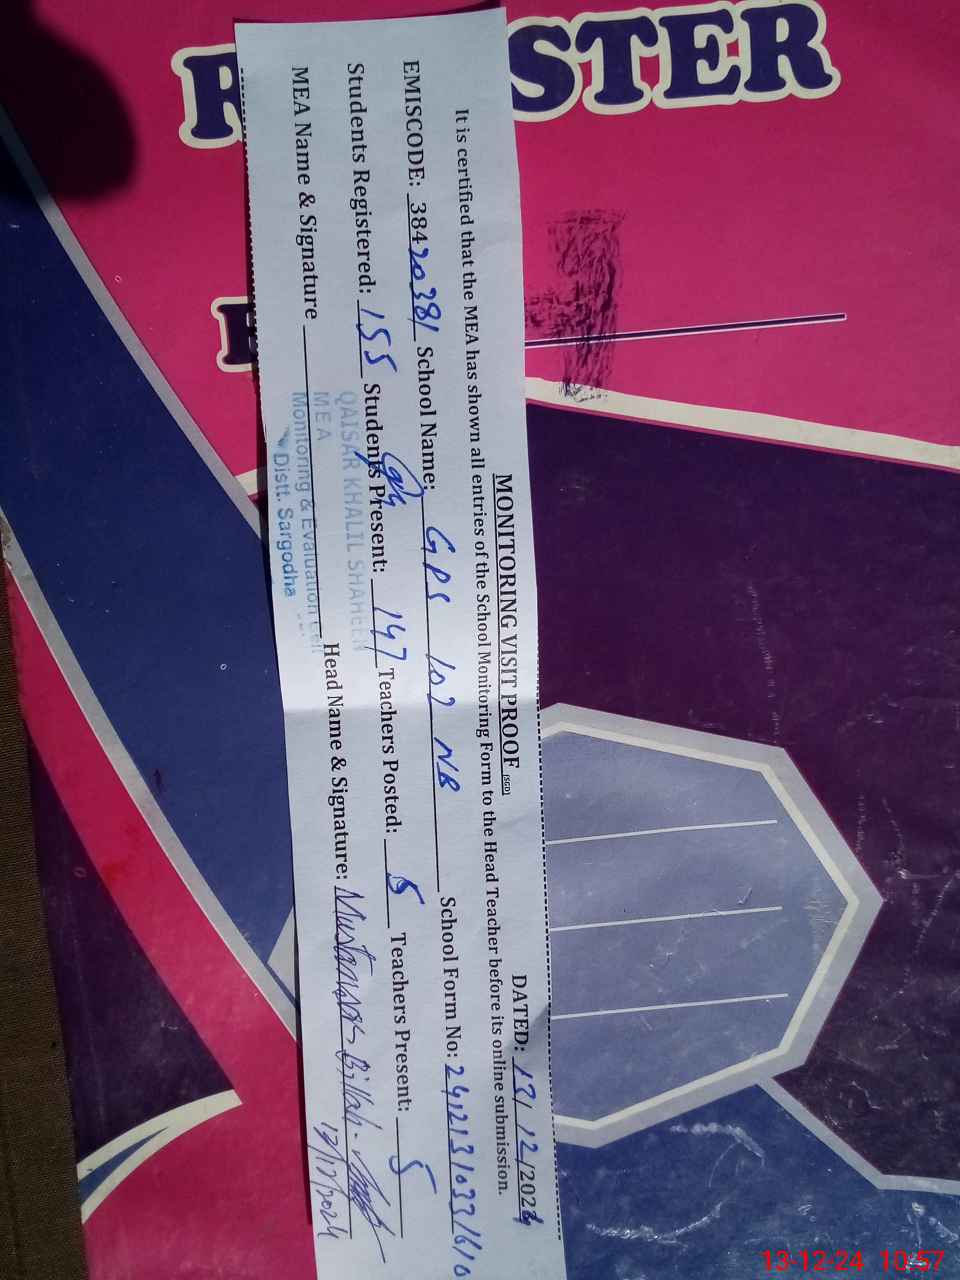 STER
MONITORING VISIT PROOF (SGD)
DATED: 13/12/2024
It is certified that the MEA has shown all entries of the School Monitoring Form to the Head Teacher before its online submission.
EMISCODE: 38420381 School Name: GPS 102 NB School Form No:
Students Registered: 155 Students Present: 147 Teachers Posted: 5 Teachers Present: 5
MEA Name & Signature Head Name & Signature: Billah
13/12/2024
QAISAR KHALIL SHAHEEN
MEA
Monitoring & Evaluation Cell
Distt. Sargodha
13-12-24 10:57